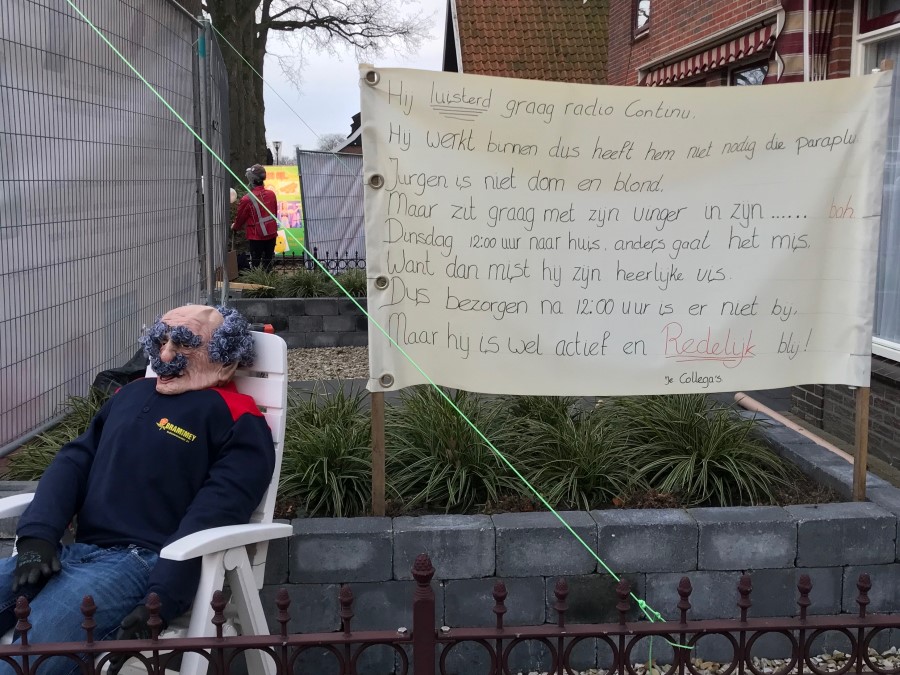 Hy luisterd graag radio Continu.
Hy werkt binnen dus heeft hem niet nodig die paraplu
Jurgen is niet dom en blond.
Maar zit graag met zyn vinger in zyn ...... bah
Dinsdag 12:00 uur naar huis, anders gaat het mis.
Want dan mist hy zyn heerlyke vis.
Dus bezorgen na 12:00 uur is er niet by.
Maar hy is wel actief en Redelyk bly!
Je Collega's
BRAMMEY